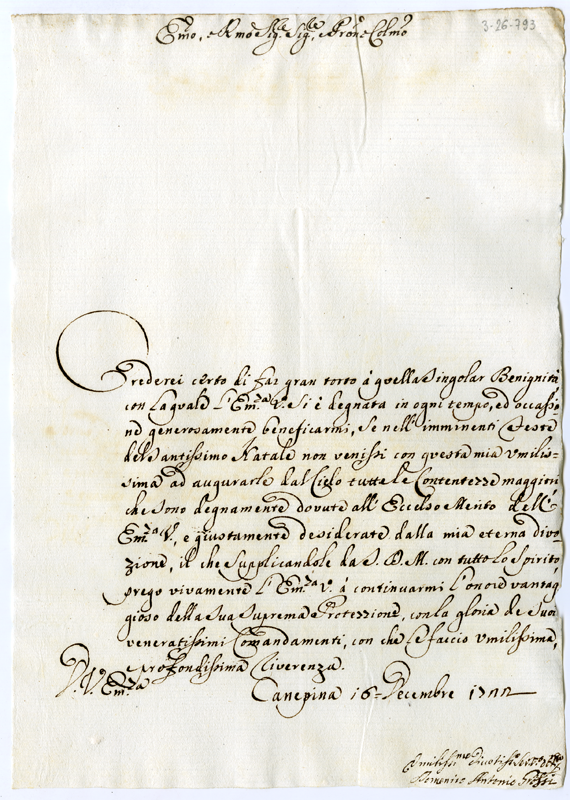 Emo, e Rmo Sig.re Sig.re, e Pron Colmo
3-26-793
Crederei certo di far gran torto á quella Singolar Benignità
con la quale l'Em.za V. si è degnata in ogni tempo, ed occasio=
ne generosamente beneficarmi, se nell'imminenti Feste
del Santissimo Natale non venissi con questa mia umilis=
sima ad augurarle dal Cielo tutte le Contentezze maggiori
che sono degnamente dovute all'Eccelso Merito dell'
Em.za V., e giustamente desiderate dalla mia eterna divo
zione, il che supplicandole da S. D. M. con tutto lo Spirito,
prego vivamente l'Em.za V. á continuarmi l'onore vantag
gioso della Sua Suprema Protezzione, con la gloria de Suoi
veneratissimi Comandamenti, con che le faccio umilissima,
e profondissima Riverenza.
D. V. Em.za
Canepina 16 Decembre 1722
Umilissi.mo Divotiss.o
Domenico Antonio